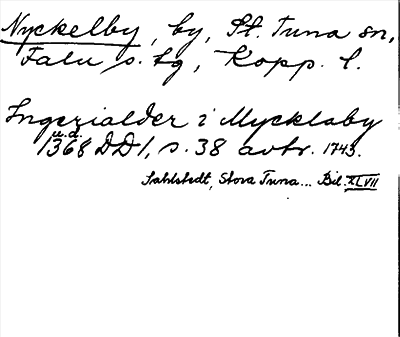 Nyckelby, by, St. Tuna sn,
Falu s. tg, Kopp. l.
Ingezialder i Mycklaby
u.d.
1368 DD1, s. 38 avtr. 1743.
Sahlstedt, Stora Tuna... Bil. XLVII